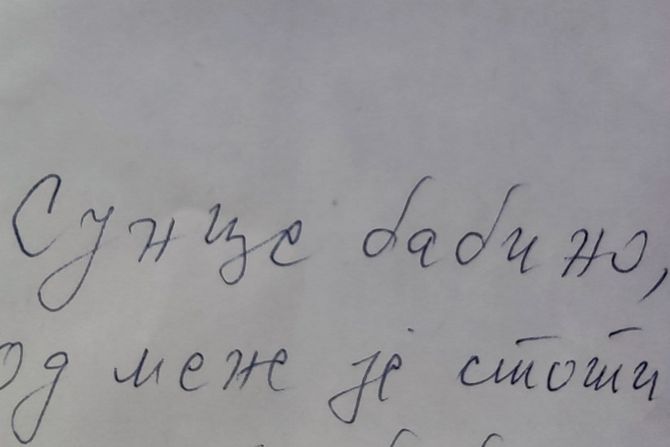 Сунце бабино,
од мене је стоти